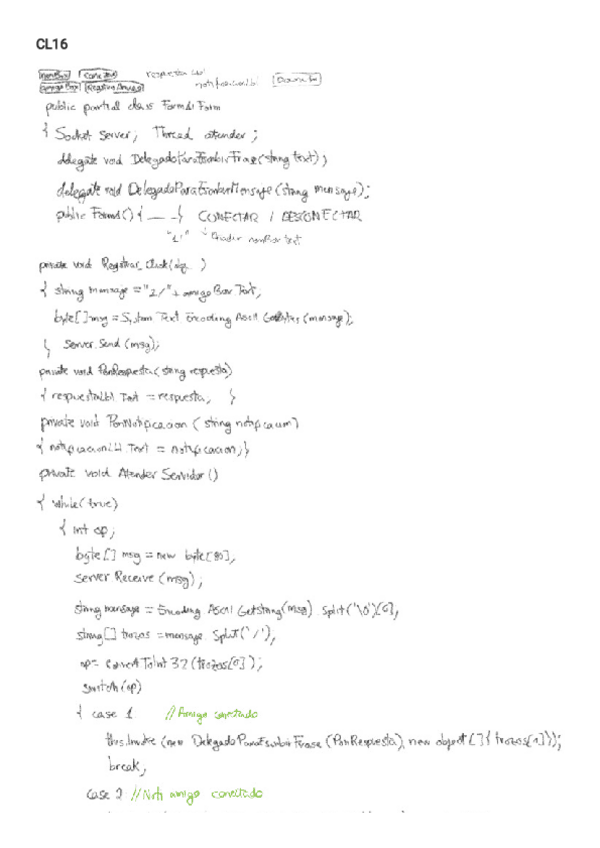 CL16
nomBox Conectar respuesta Lbl
amigo Box Registrar Amigo notificacionlbl
public partial class Form1: Form
{ Socket server; Thread atender;
delegate void DelegadoParaEscribirFrase(string text);
delegate void DelegadoParaEscribirMensaje(string mensaje);
public Form1() { — } CONECTAR / DESCONECTAR
"1/" nomBox text
private void Registrar_Click(obj )
{ string mensaje = "2/" + amigo Box.Text;
byte[] msg = System.Text.Encoding.ASCII.GetBytes(mensaje);
} server.Send (msg);
private void PonRespuesta(string respuesta)
{ respuestalbl.Text = respuesta; }
private void PonNotificacion (string notificacion)
{ notificacionlbl.Text = notificacion; }
private void Atender Servidor ()
{ while(true)
{ int op;
byte[] msg = new byte[80];
server.Receive (msg);
string mensaje = Encoding.ASCII.GetString(msg).Split('\0')[0];
string[] trozos = mensaje.Split('/');
op = Convert.ToInt 32 (trozos[0]);
switch (op)
{ case 1 // Amigo conectado
this.Invoke (new DelegadoParaEscribirFrase (PonRespuesta), new object []{ trozos[1]});
break;
case 2 // Noti amigo conectado